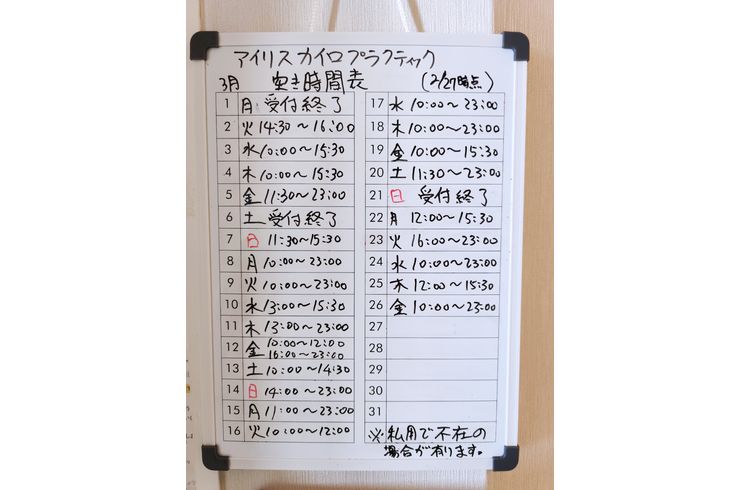 アイリス カイロプラクティック
3月 空き時間表 (2/27時点)
1 月 受付終了
2 火 14:30〜16:00
3 水 10:00〜15:30
4 木 10:00〜15:30
5 金 11:30〜23:00
6 土 受付終了
7 日 11:30〜15:30
8 月 10:00〜23:00
9 火 10:00〜23:00
10 水 13:00〜15:30
11 木 13:00〜23:00
12 金 10:00〜12:00
16:00〜23:00
13 土 10:00〜14:30
14 日 14:00〜23:00
15 月 11:00〜23:00
16 火 10:00〜12:00
17 水 10:00〜23:00
18 木 10:00〜23:00
19 金 10:00〜15:30
20 土 11:30〜23:00
21 日 受付終了
22 月 12:00〜15:30
23 火 16:00〜23:00
24 水 10:00〜23:00
25 木 12:00〜15:30
26 金 10:00〜23:00
27
28
29
30
31
※私用で不在の
場合が有ります。